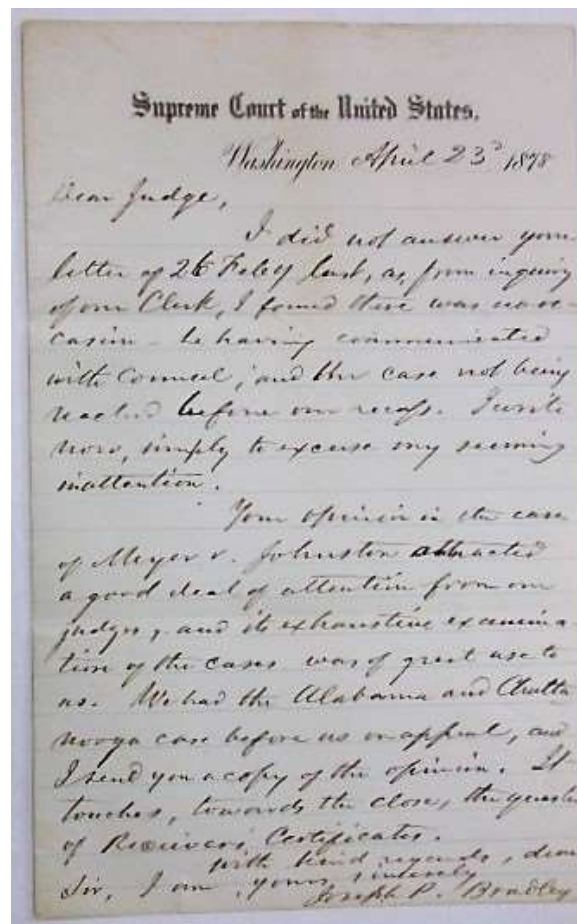 Supreme Court of the United States.
Washington April 23d 1878
Dear Judge,
I did not answer your
letter of 26 Feby last, as, from inquiry
of our Clerk, I found there was no oc-
casion - he having communicated
with counsel; and the case not being
reached before our recess. I write
now, simply to excuse my seeming
inattention.
Your opinion in the case
of Meyer v. Johnston attracted
a good deal of attention from our
judges, and its exhaustive examina-
tion of the cases was of great use to
us. We had the Alabama and Chatta
nooga case before us on appeal, and
I send you a copy of the opinion. It
touches, towards the close, the question
of Receivers' Certificates.
With kind regards, dear
Sir, I am, yours sincerely
Joseph P. Bradley